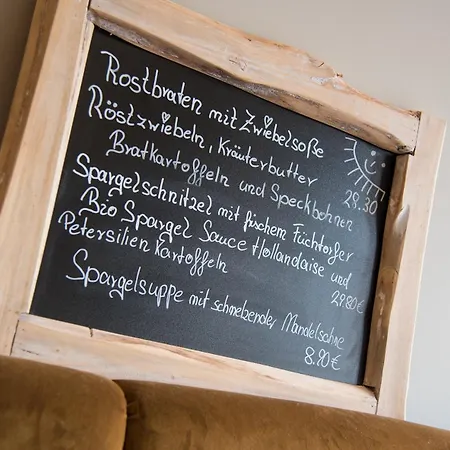 Rostbraten mit Zwiebelsoße
Röstzwiebeln, Kräuterbutter
Bratkartoffeln und Speckbohnen
29.30
Spargelschnitzel mit frischem Füchtorfer
Bio Spargel Sauce Hollandaise und
Petersilien Kartoffeln
29.80€
Spargelsuppe mit schmebender Mandelsahne
8.90€